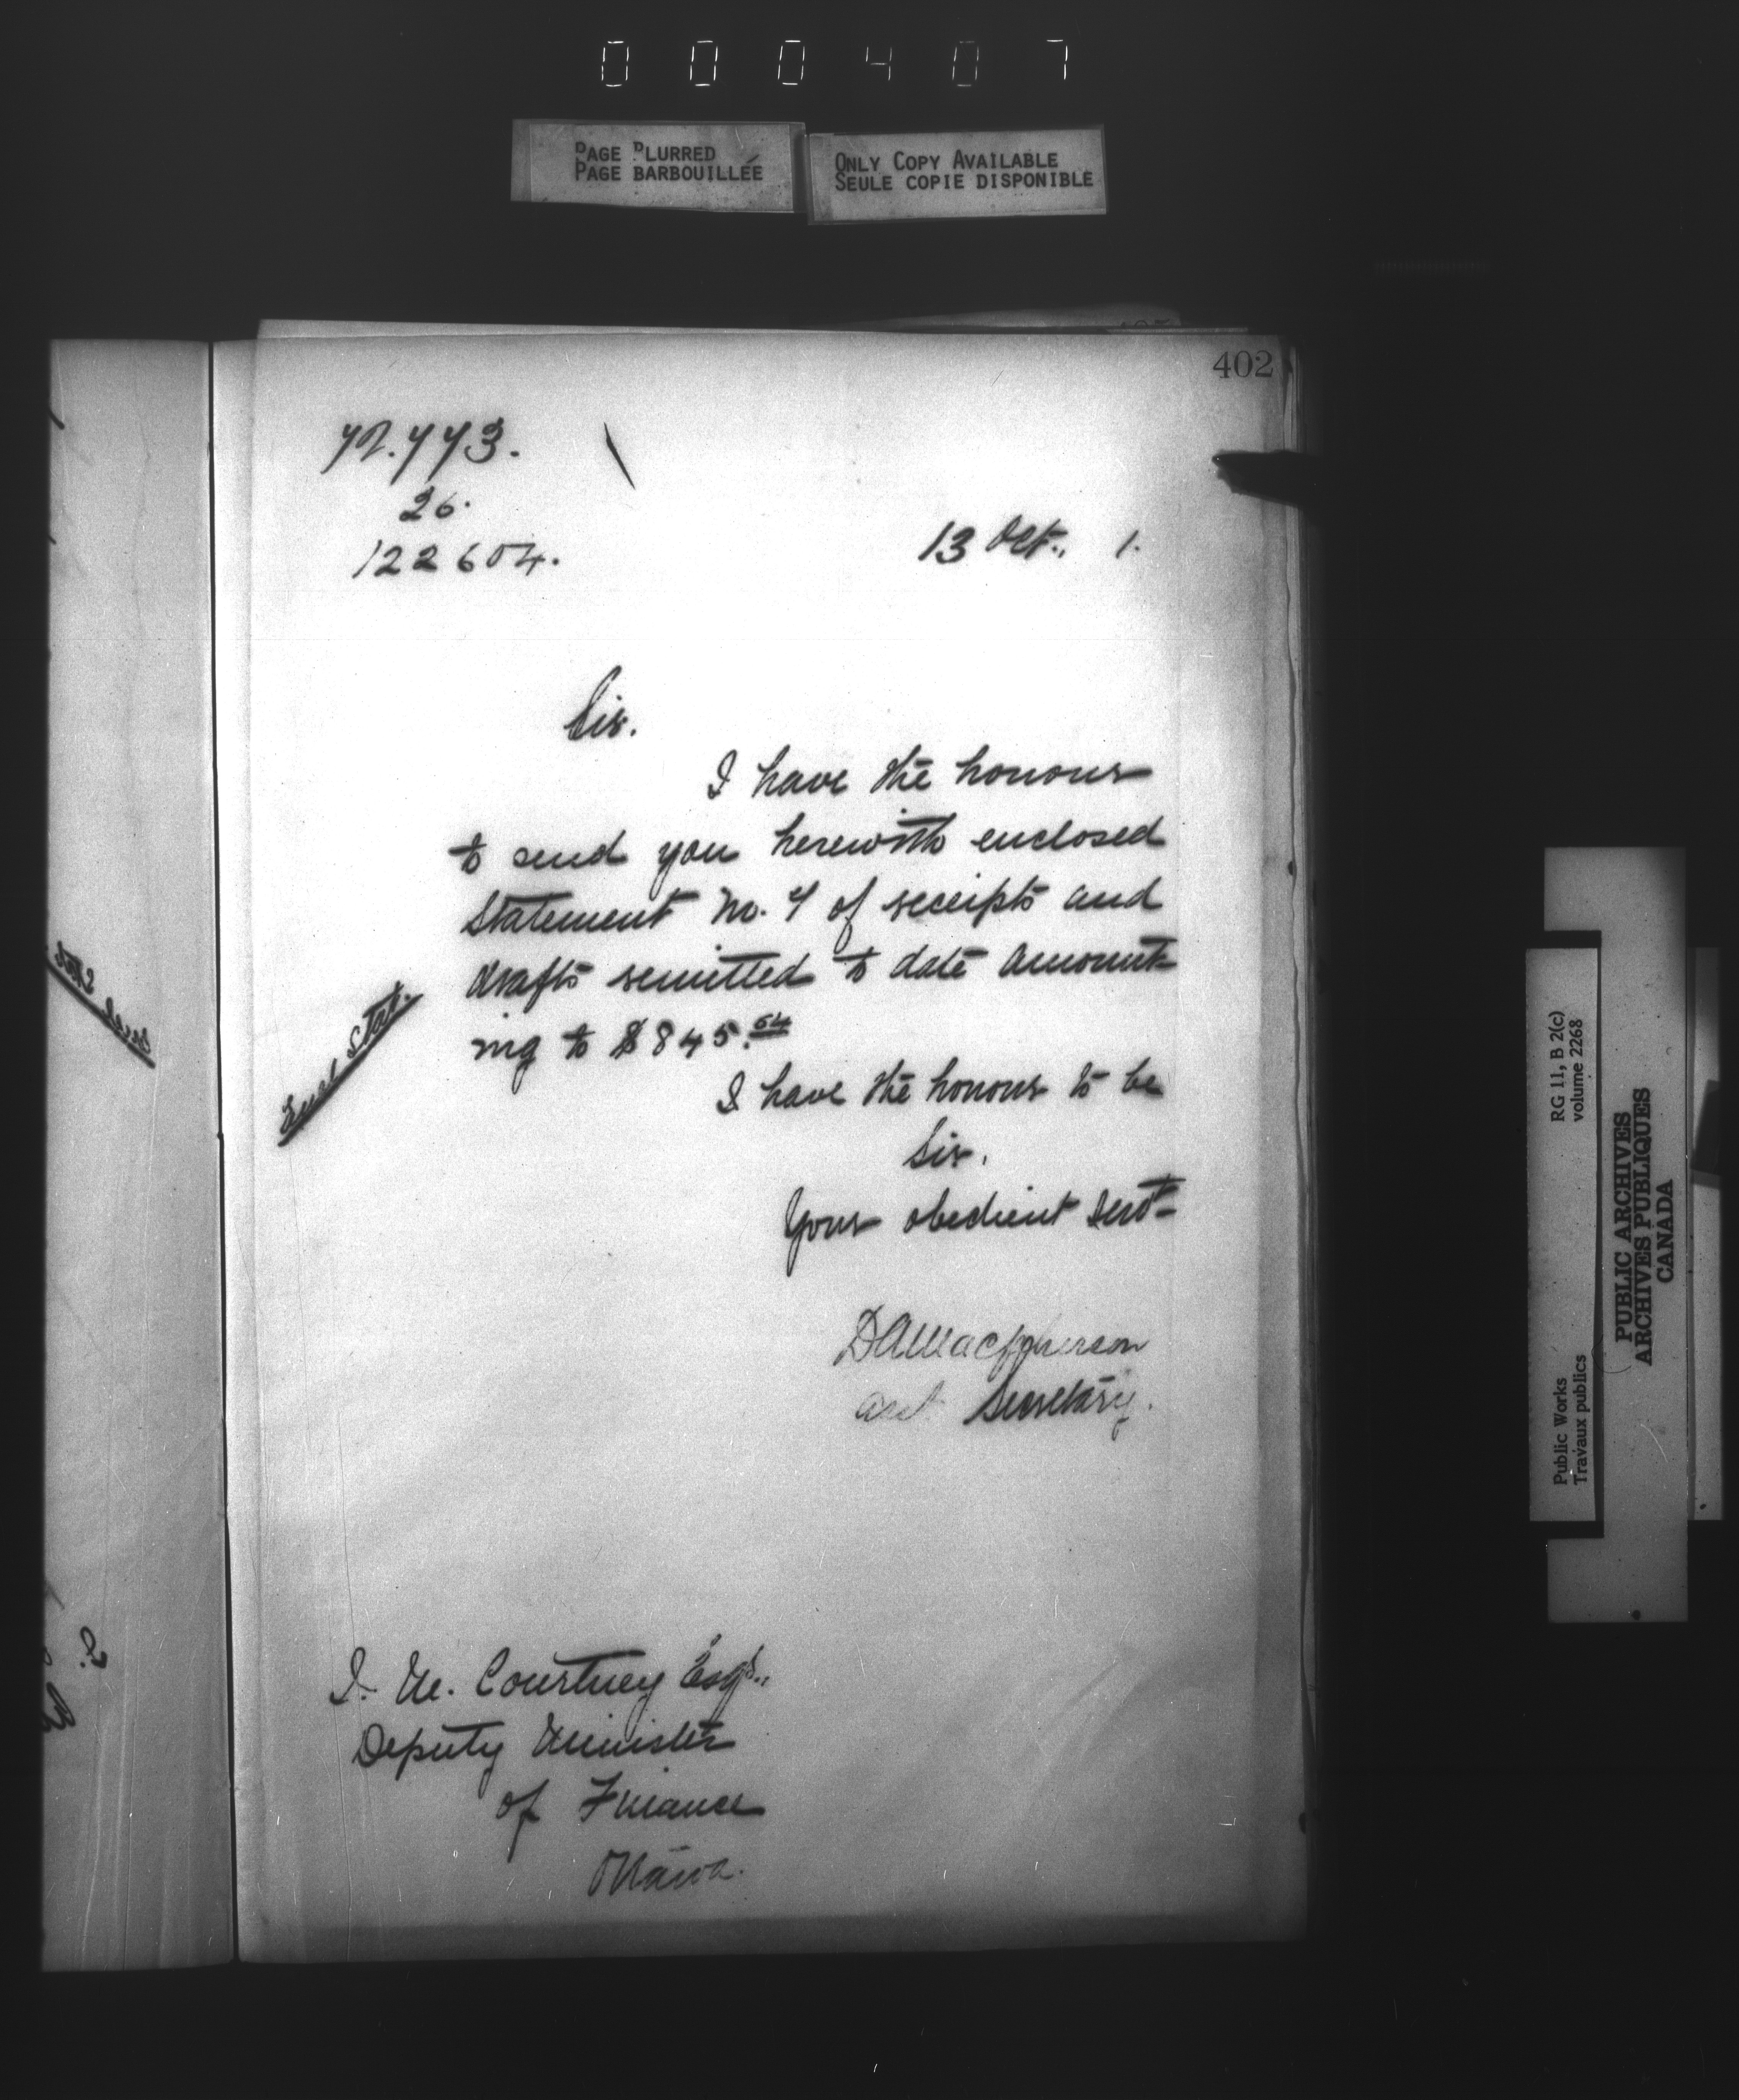 000407
PAGE BLURRED
PAGE BARBOUILLÉE
ONLY COPY AVAILABLE
SEULE COPIE DISPONIBLE
402
26.
122604.
13 Oct., 1.
Sir.
I have the honour
to send you herewith enclosed
Statement No. 7 of receipts and
drafts remitted to date amount-
ing to $845.64
Encl Stat.
I have the honour to be
Sir,
Your obedient Servt
DA Macpherson
Asst. Secretary.
J. M. Courtney Esqr.,
Deputy Minister
of Finance
Ottawa.
RG 11, B 2(c)
volume 2268
Public Works
Travaux publics
PUBLIC ARCHIVES
ARCHIVES PUBLIQUES
CANADA